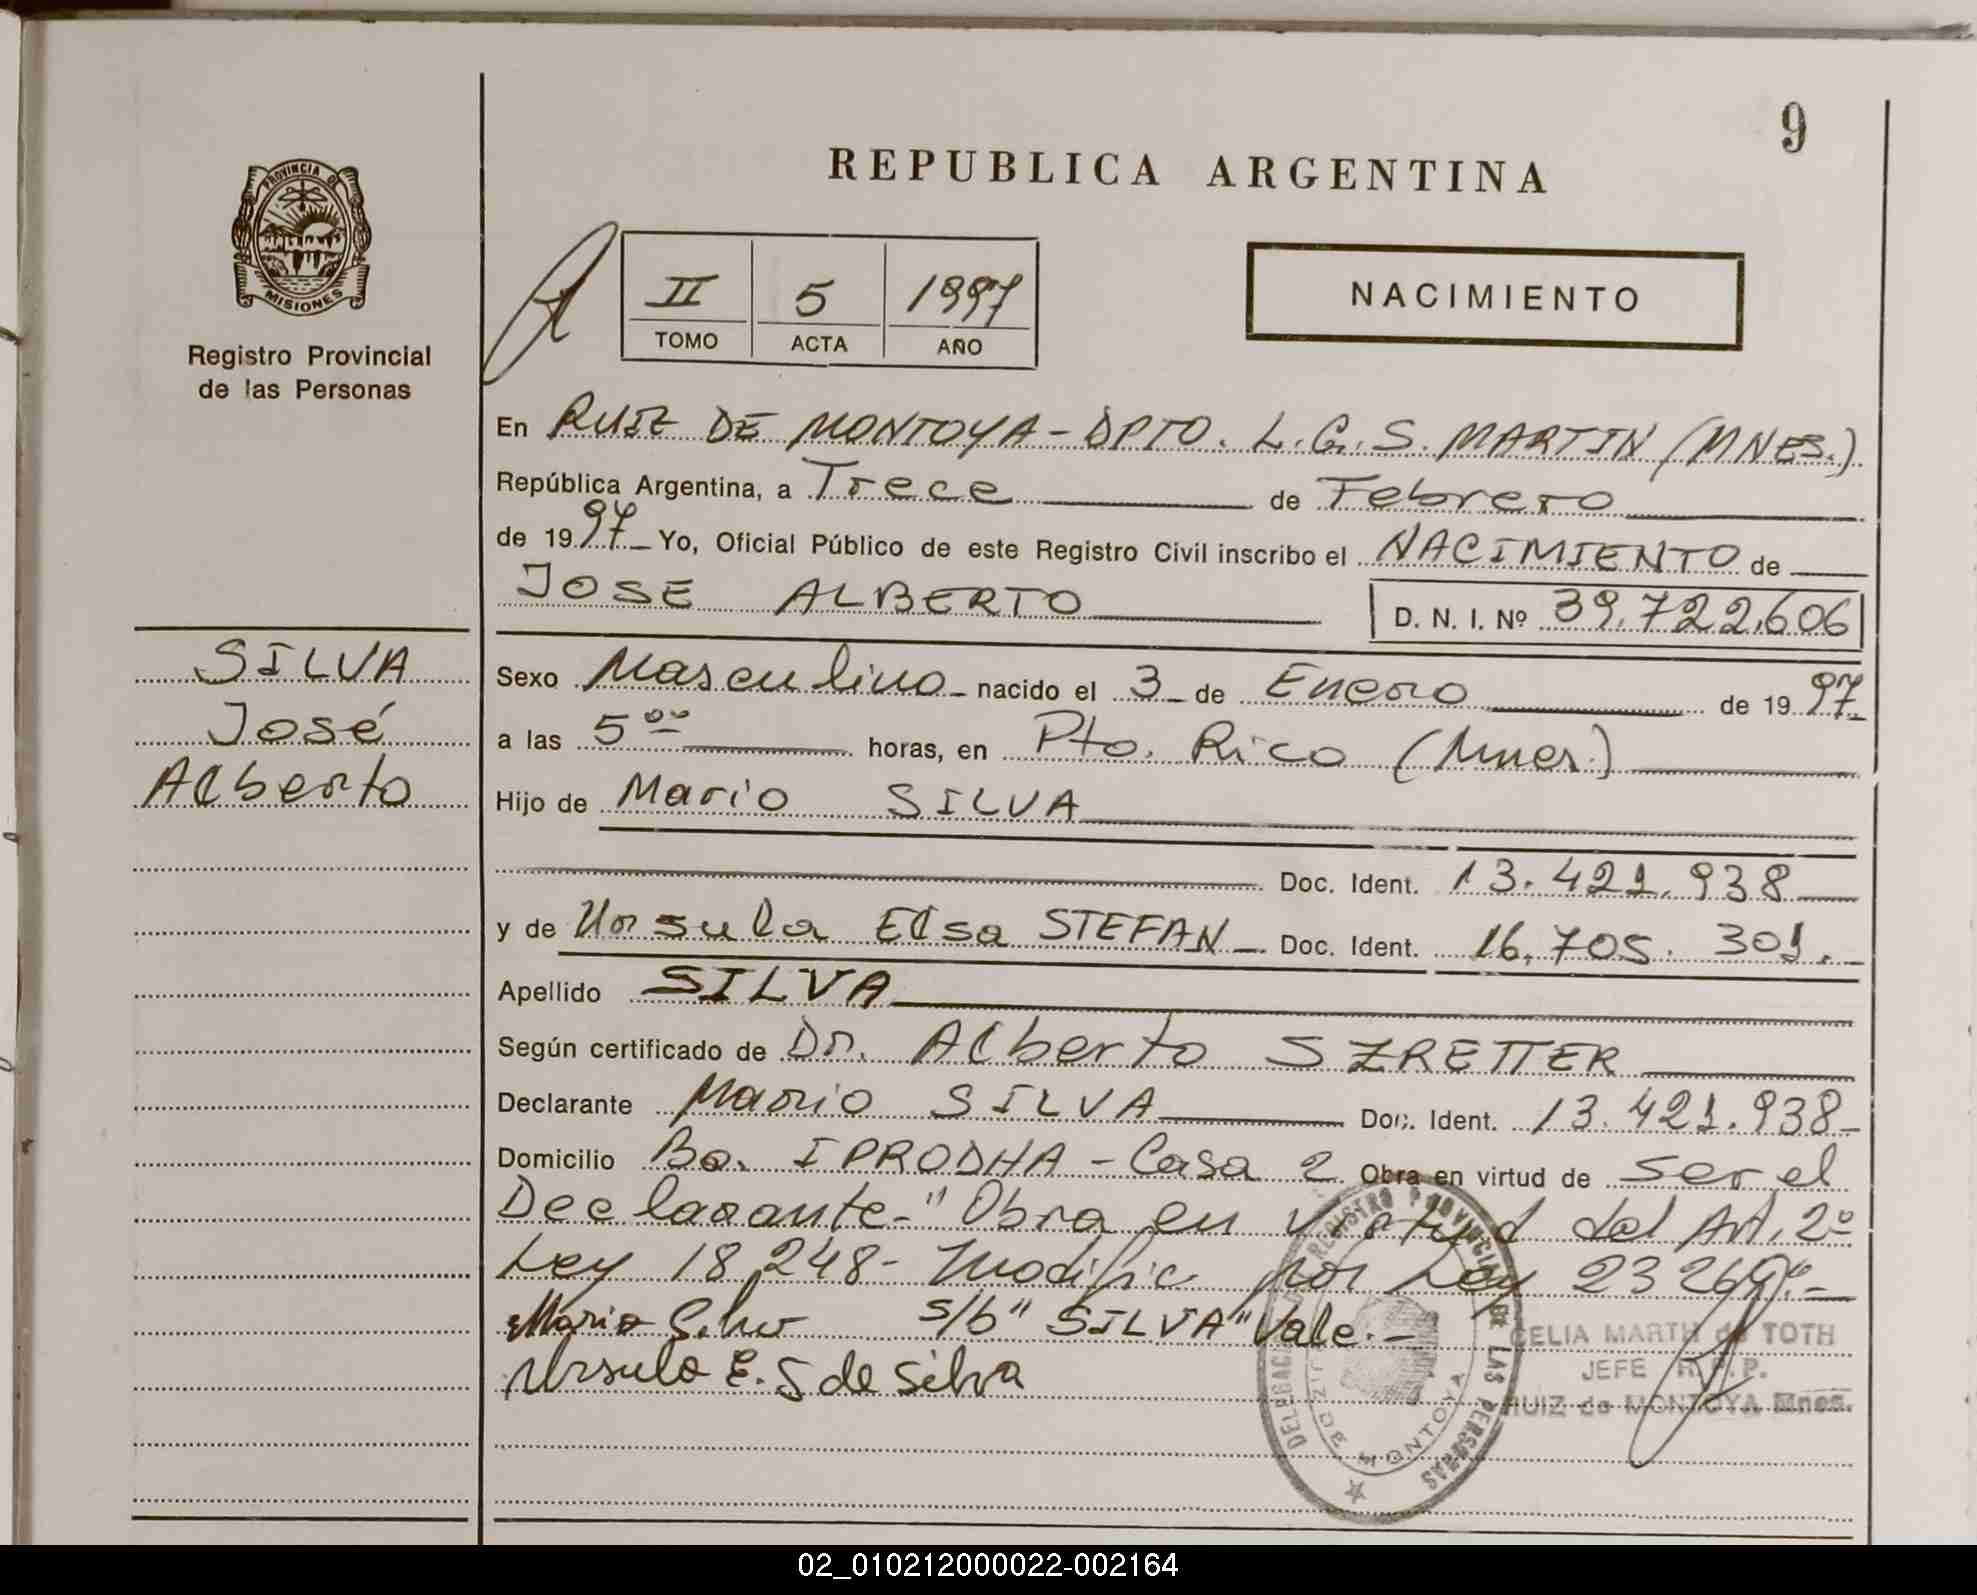 9
REPUBLICA ARGENTINA
PROVINCIA DE
MISIONES
Registro Provincial
de las Personas
II 5 1997
TOMO ACTA AÑO
NACIMIENTO
En RUIZ DE MONTOYA - DPTO. L.G.S. MARTIN (MNES.)
República Argentina, a Trece de Febrero
de 1997 Yo, Oficial Público de este Registro Civil inscribo el NACIMIENTO de
JOSE ALBERTO D. N. I. Nº 39.722.606
SILVA
José
Alberto
Sexo Masculino nacido el 3 de Enero de 1997
a las 5 ºº horas, en Pto. Rico (Mnes.)
Hijo de Mario SILVA
Doc. Ident. 13.421.938
y de Ursula Elsa STEFAN Doc. Ident. 16.705.301.
Apellido SILVA
Según certificado de Dr. Alberto SZRETTER
Declarante Mario SILVA Doc. Ident. 13.421.938
Domicilio Bo. IPRODHA - Casa 2 Obra en virtud de ser el
Declarante.- "Obra en virtud del Art. 2º
Ley 18.248- Modific. por Ley 23264".-
Mario Silva s/b "SILVA" Vale.-
Ursula E. S de Silva
DELEGACION REGISTRO PROVINCIAL DE LAS PERSONAS
RUIZ DE MONTOYA
CELIA MARTH de TOTH
JEFE R.P.P.
RUIZ de MONTOYA Mnes.
02_010212000022-002164